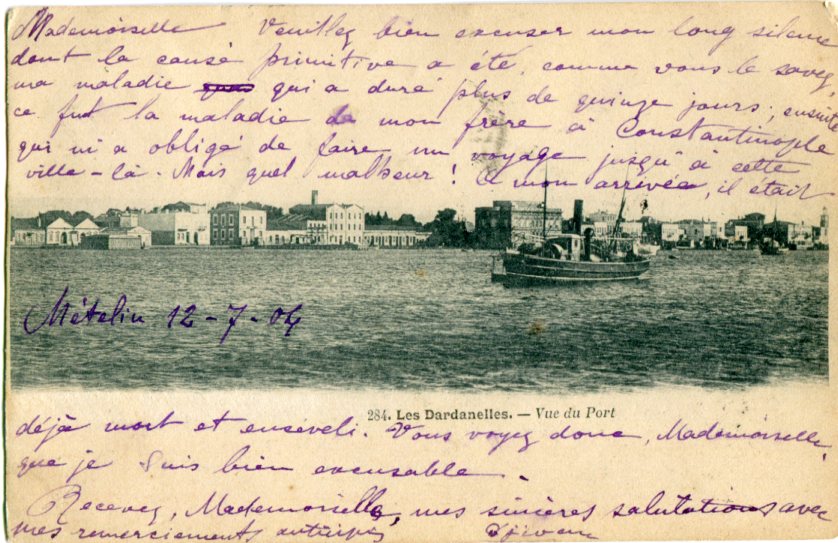 Mademoiselle Veuillez bien excuser mon long silence
dont la cause primitive a été, comme vous le savez,
ma maladie qui a duré plus de quinze jours; ensuite
ce fut la maladie de mon frère à Constantinople
qui m'a obligé de faire un voyage jusqu'à cette
ville-là. Mais quel malheur! A mon arrivée, il était
Mételin 12-7-04
284. Les Dardanelles. — Vue du Port
déjà mort et enseveli. Vous voyez donc, Mademoiselle,
que je suis bien excusable.
Recevez, Mademoiselle, mes sincères salutations avec
mes remerciements anticipés